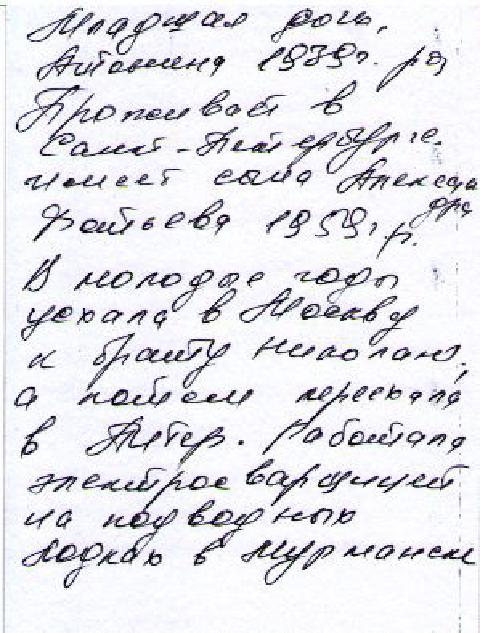 Младшая дочь,
Антонина 1939г. р,
Проживает в
Санкт-Петербурге.
имеет сына Александра
Фатьева 1959г р.
В молодые годы
уехала в Москву
к брату Николаю,
а потом переехала
в Питер. Работала
электросварщицей
на подводных
лодках в Мурманске